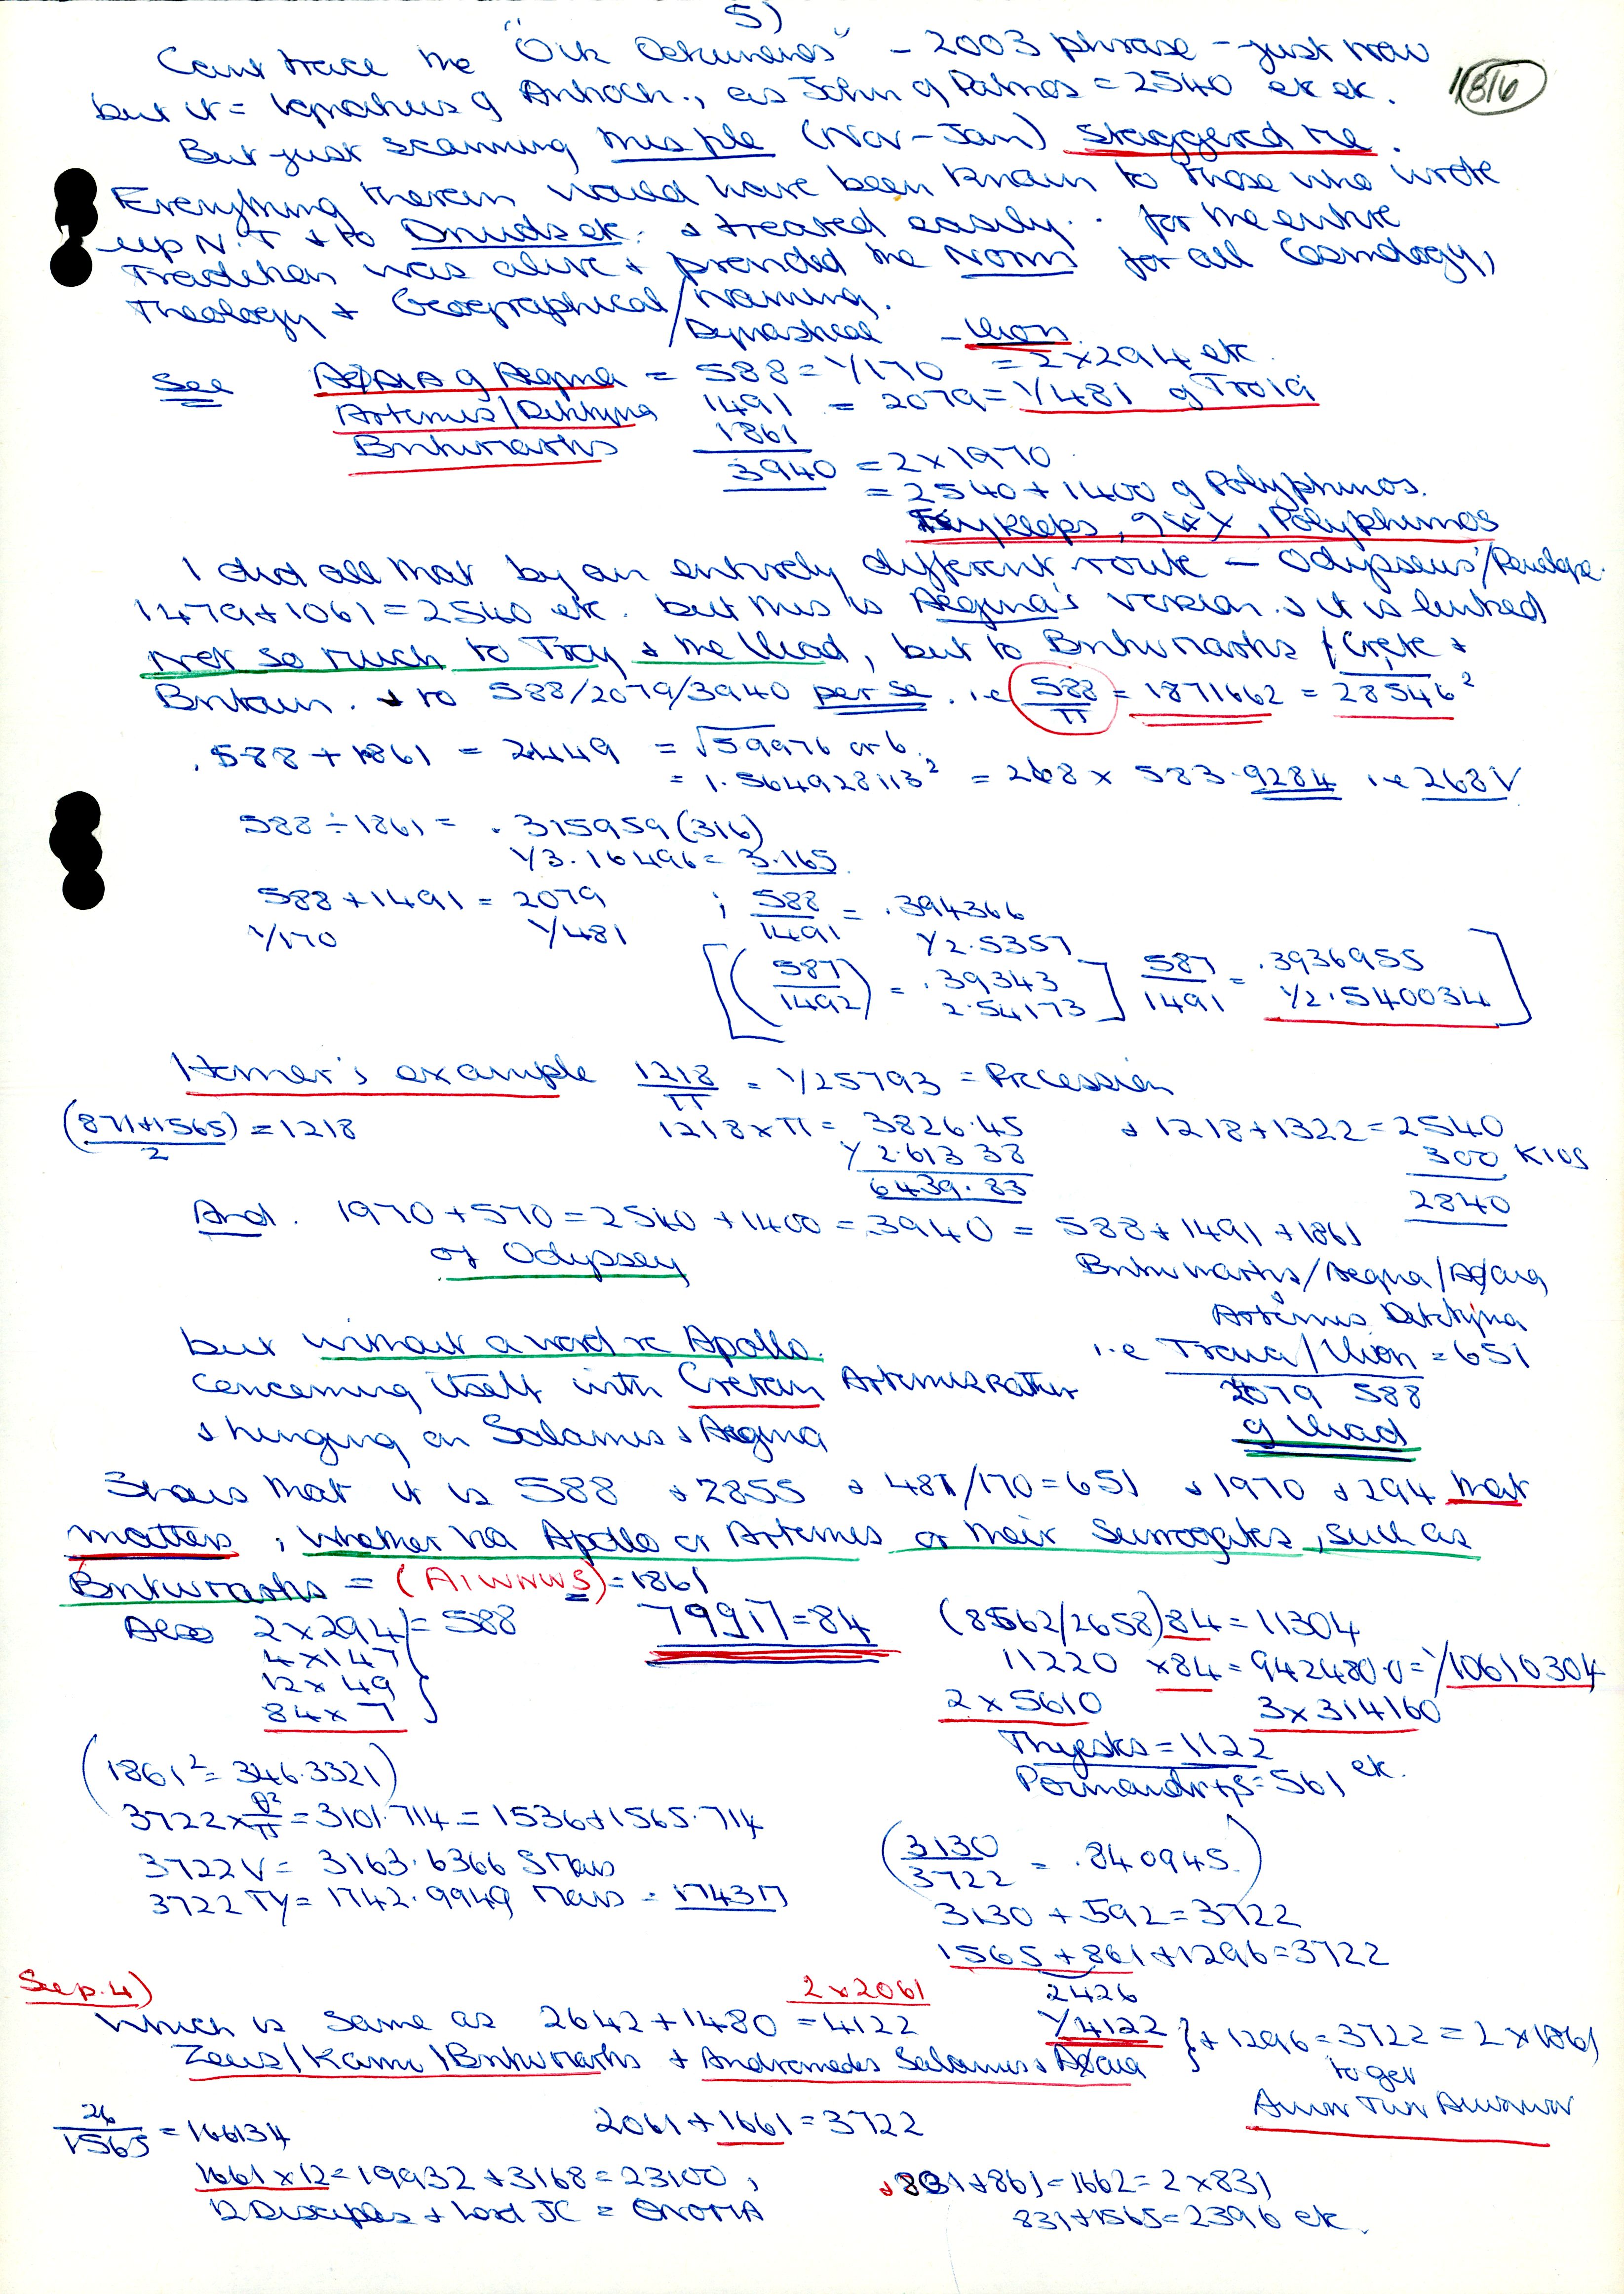 5)
Cant trace the "Oik - 2003 phrase - just now
1/8/6
but it = Ignatius of Antioch., as John of Patmos = 2540 etc etc.
But just scanning this ple (Nov-Jan) staggered me.
Everything therein would have been known to those who wrote
up N.T & to Druids etc. & treated easily.. for the entire
Tradition was alive & provided the Norm for all Cosmology,
Theology & Geographical/Naming.
/Dynastical - Ilion
See of Aegina = 588 = 1/170 = 2x294 etc.
Artemis/Diktynna 1491 = 2079 = 1/481 of Troia
Britomartis 1861
3940 = 2x1970
= 2540 + 1400 of Polyphimos.
Polyphimos
I did all that by an entirely different route - Odysseus/Penelope
1479+1061=2540 etc. but this is Aegina's version. & it is linked
Not so much to Troy & the Iliad, but to Britomartis / Crete &
Britain. & to 588/2079/3940 per se. i.e 588/π = 1871662 = 28546²
588 + 1861 = 2449 = √59976 or 6.
= 1.564928113² = 268 x 583.9284 i.e 268V
588 ÷ 1861 = .315959 (316)
1/3.16496 = 3.165
588 + 1491 = 2079 ; 588/1491 = .394366
1/170 1/481 1/2.5357
[(587/1492) = .39343 2.54173] 587/1491 = .3936955 1/2.540034]
Homer's example 1218/π = 1/25793 = Precession
(871+1565)/2 = 1218 1218 x π = 3826.45 & 1218+1322=2540
1/2.61338 300 Kios
6439.83 2840
And. 1970 + 570 = 2540 + 1400 = 3940 = 588 + 1491 + 1861
of Odyssey Britomartis/Aegina/
Artemis Diktynna
but without a word re Apollo. i.e Troia/Ilion = 651
concerning itself with Cretan Artemis Rather 2079 588
& hinging on Salamis & Aegina of Iliad
Shows that it is 588 & 2855 & 481/170=651 & 1970 & 294 that
matters, whether via Apollo or Artemis or their Surrogates, such as
Britomartis = (AIWNWS) = 1861
Also 2x294 = 588 = 84 (84 = 11304
4x147 11220 x84 = 942480.0 = 1/10610304
12x49 2x5610 3x314160
84x7 Thyestes = 1122
(1861² = 346.3321) = 561 etc.
3722 x θ²/π = 3101.714 = 1536 + 1565.714
3722V = 3163.6366 S Mars (3130/3722 = .840945)
3722 TY = 1742.9949 Mars = 1743
3130 + 592 = 3722
1565 + 861 + 1296 = 3722
See p.4) 2x2061 2426
Which is same as 2642 + 1480 = 4122 1/4122 } + 1296 = 3722 = 2x1861
Zeus/ /Britomartis & Andromedes Salamis & to get
26/1565 = 166134 2061 + 1661 = 3722
1661 x 12 = 19932 + 3168 = 23100, & 831 + 861 = 1662 = 2x831
12 Disciples + Lord JC = ONOMA 831 + 1565 = 2396 etc.